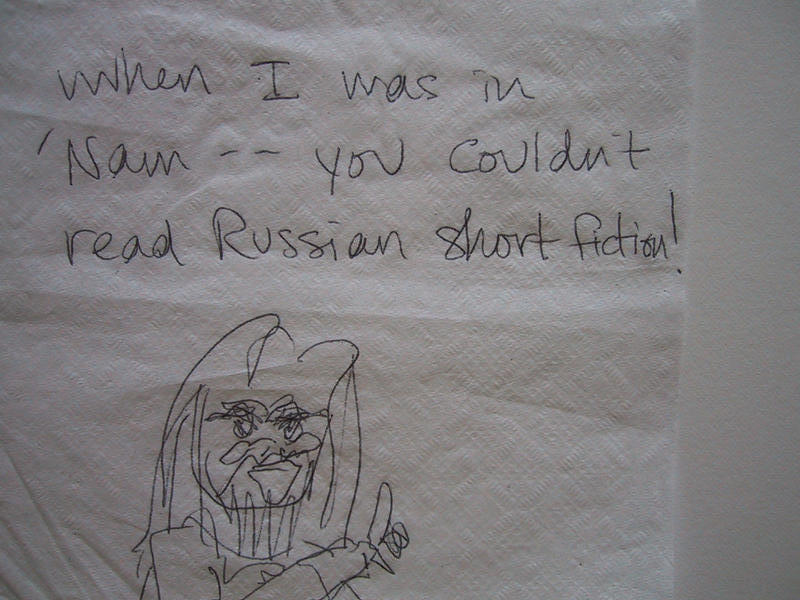 When I was in
'Nam -- you couldn't
read Russian short fiction!